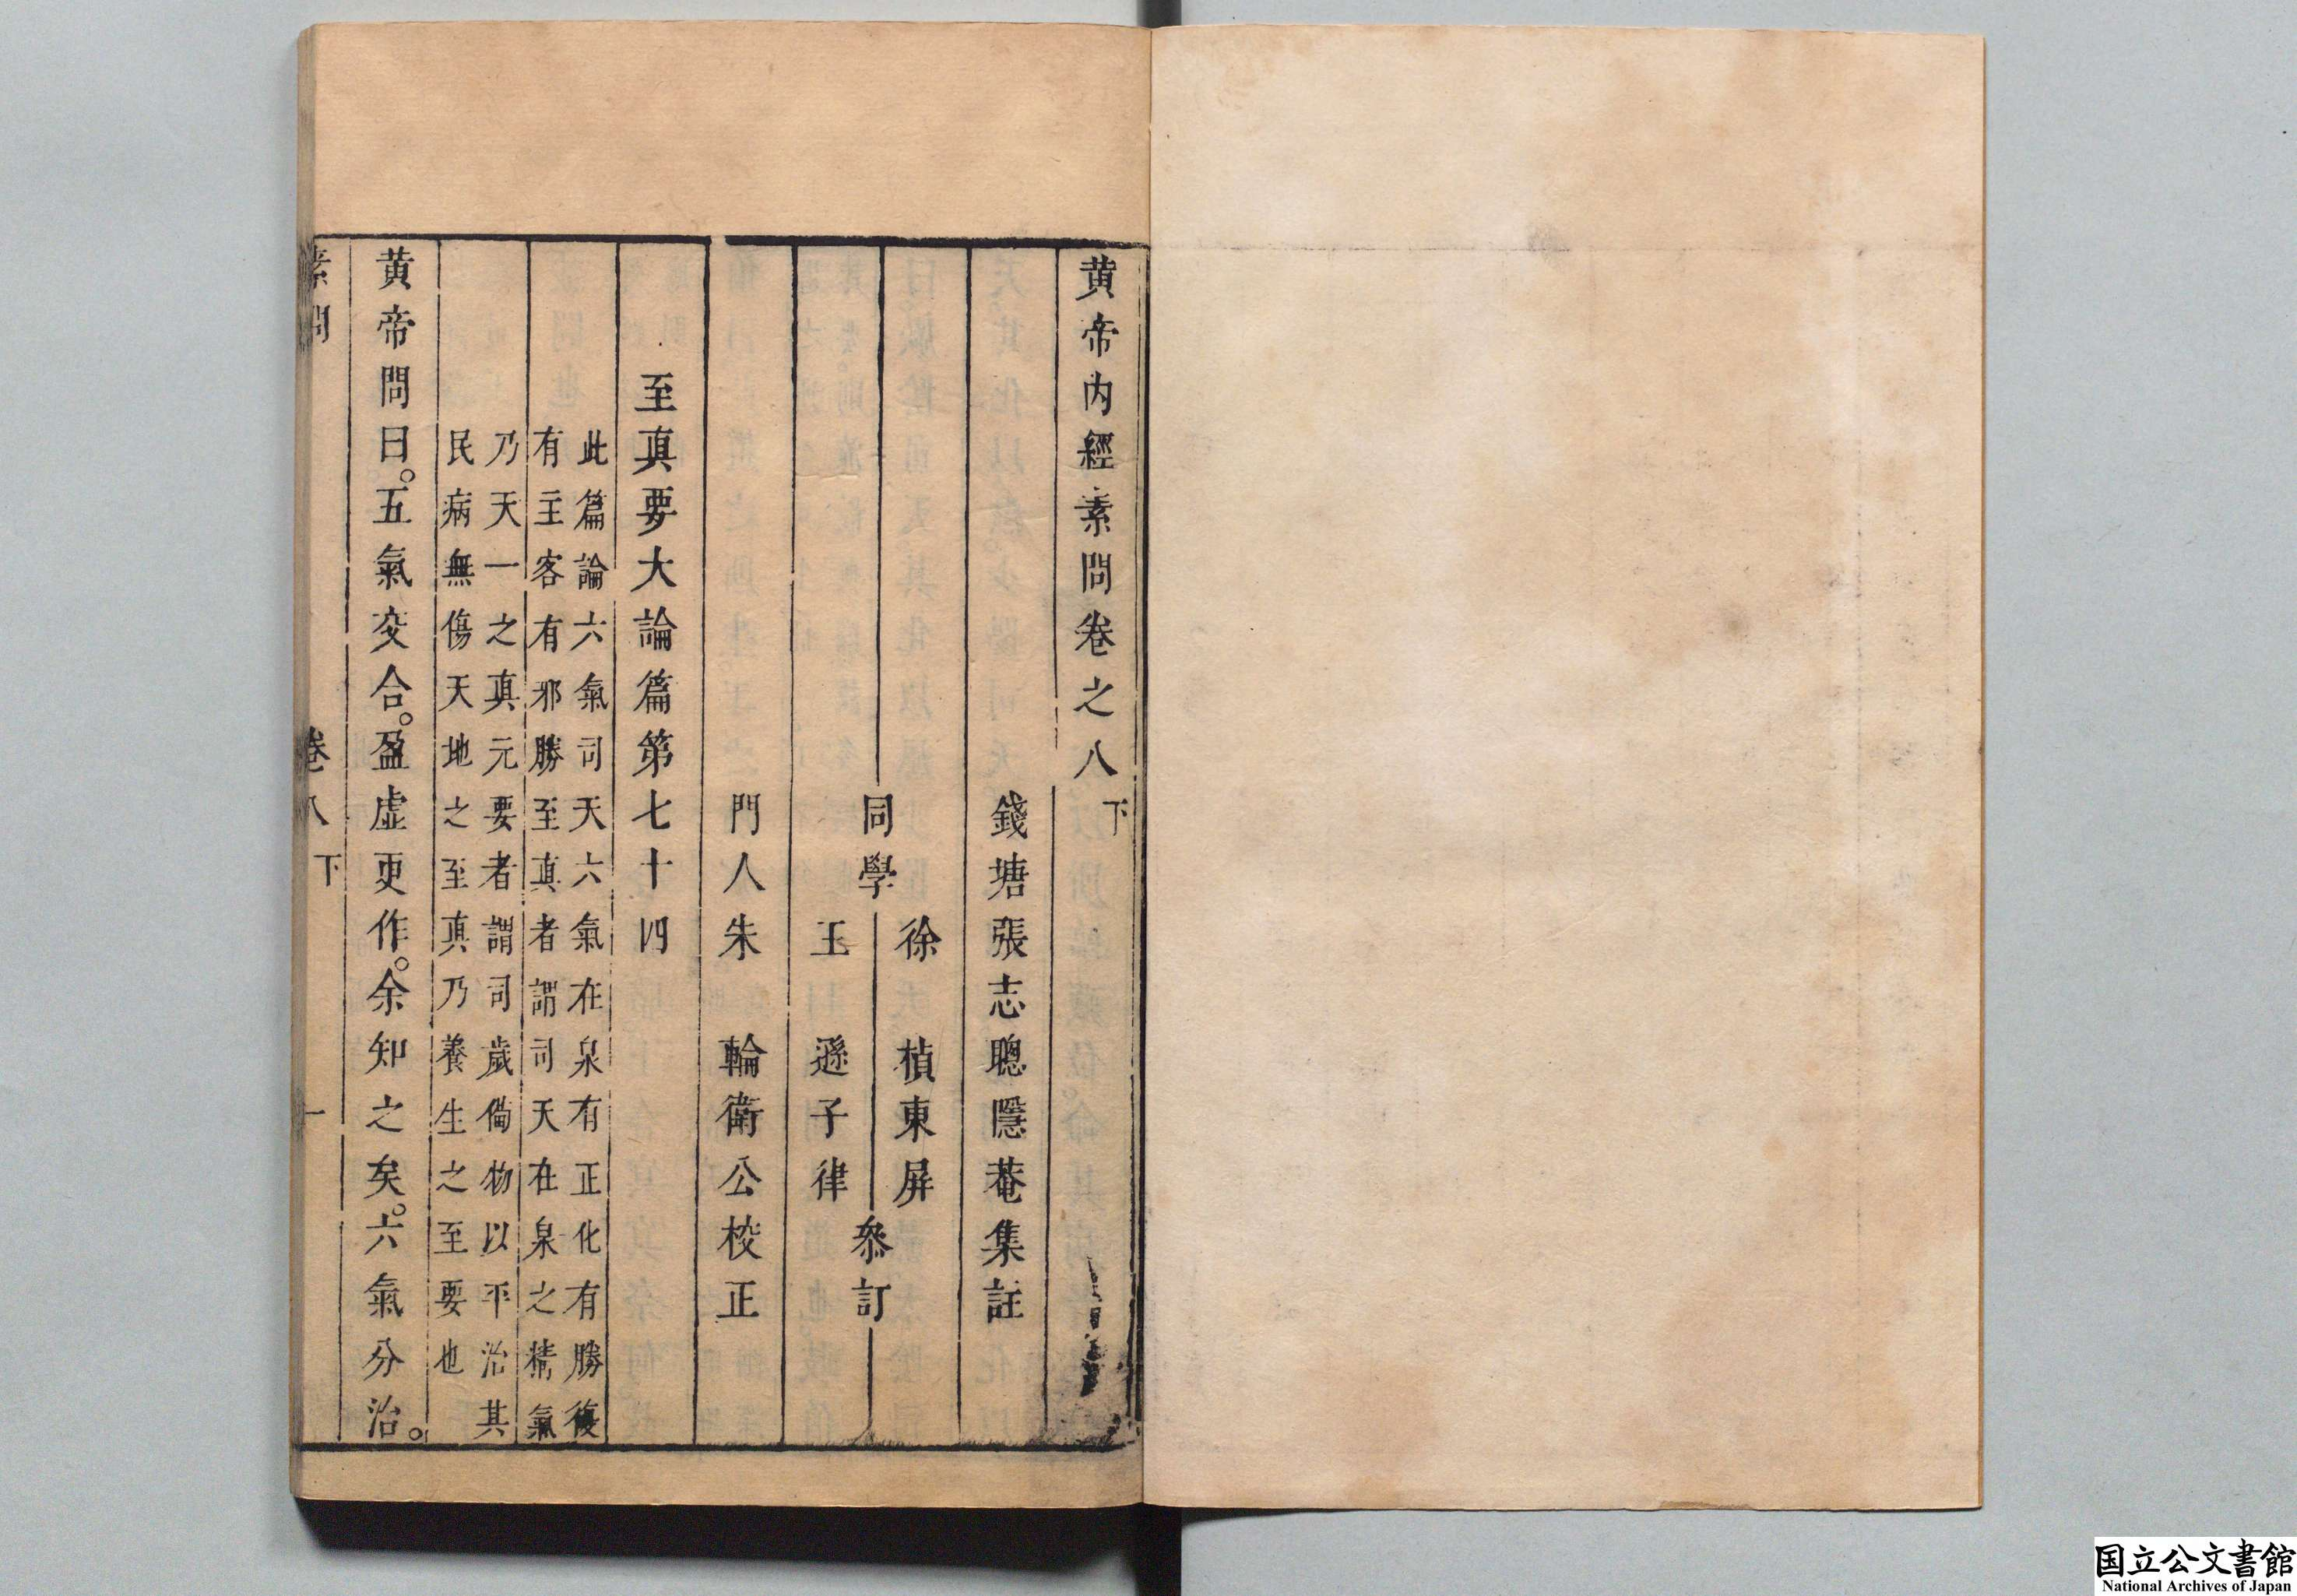 黄帝内經素問卷之八下
錢塘張志聰隱菴集註
同學
徐楨東屏
王遜子律
叅訂
門人朱輪衛公校正
至真要大論篇第七十四
此篇論六氣司天六氣在泉有正化有勝復
有主客有邪勝至真者謂司天在泉之精氣
乃天一之真元要者謂司歲偹物以平治其
民病無傷天地之至真乃養生之至要也
黄帝問曰。五氣交合。盈虛更作。余知之矣。六氣分治。
素問 卷八下 一
国立公文書館
National Archives of Japan